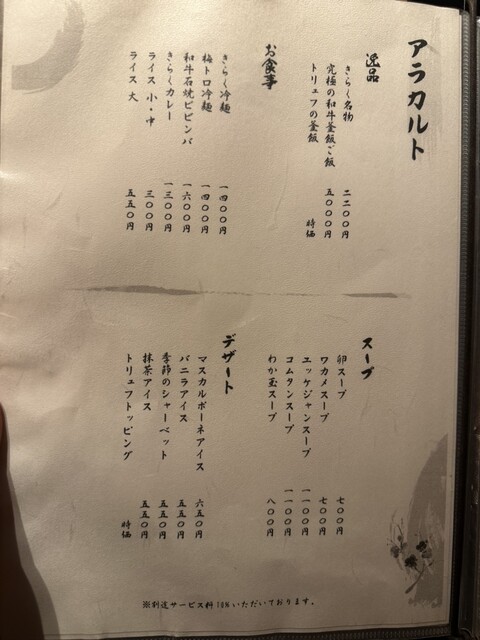 アラカルト
逸品
きらく名物 二二〇〇円
究極の和牛釜飯ご飯 五〇〇〇円
トリュフの釜飯 時価
お食事
きらく冷麺 一四〇〇円
梅トロ冷麺 一四〇〇円
和牛石焼ビビンバ 一六〇〇円
きらくカレー 一三〇〇円
ライス 小・中 三〇〇円
ライス 大 五五〇円
スープ
卵スープ 七〇〇円
ワカメスープ 七〇〇円
エッケジャンスープ 一一〇〇円
コムタンスープ 一一〇〇円
わか玉スープ 八〇〇円
デザート
マスカルポーネアイス 六五〇円
バニラアイス 五五〇円
季節のシャーベット 五五〇円
抹茶アイス 五五〇円
トリュフトッピング 時価
※別途サービス料10%いただいております。